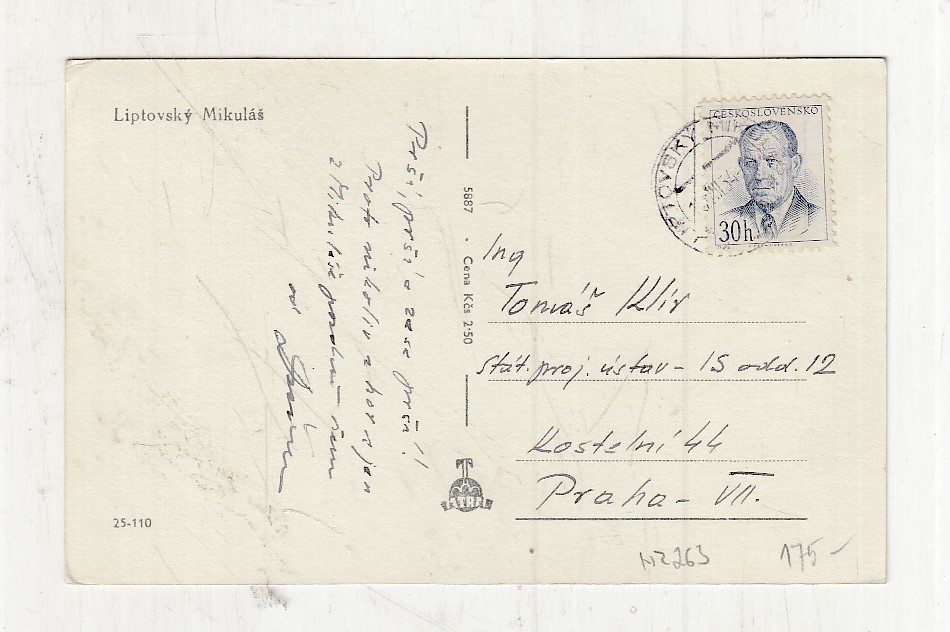 Liptovský Mikuláš
Prší, prší a zase prší!
Proto nikoliv z hor a jen
z Mikuláše pozdrav
od
5887 · Cena Kčs 2·50
TATRAN
ČESKOSLOVENSKO
30h
LIPTOVSKÝ MIK
Ing
Tomáš Klir
Stát. proj. ústav - IS odd. 12
Kostelní 44
Praha - VII.
25-110
MZ263
175-